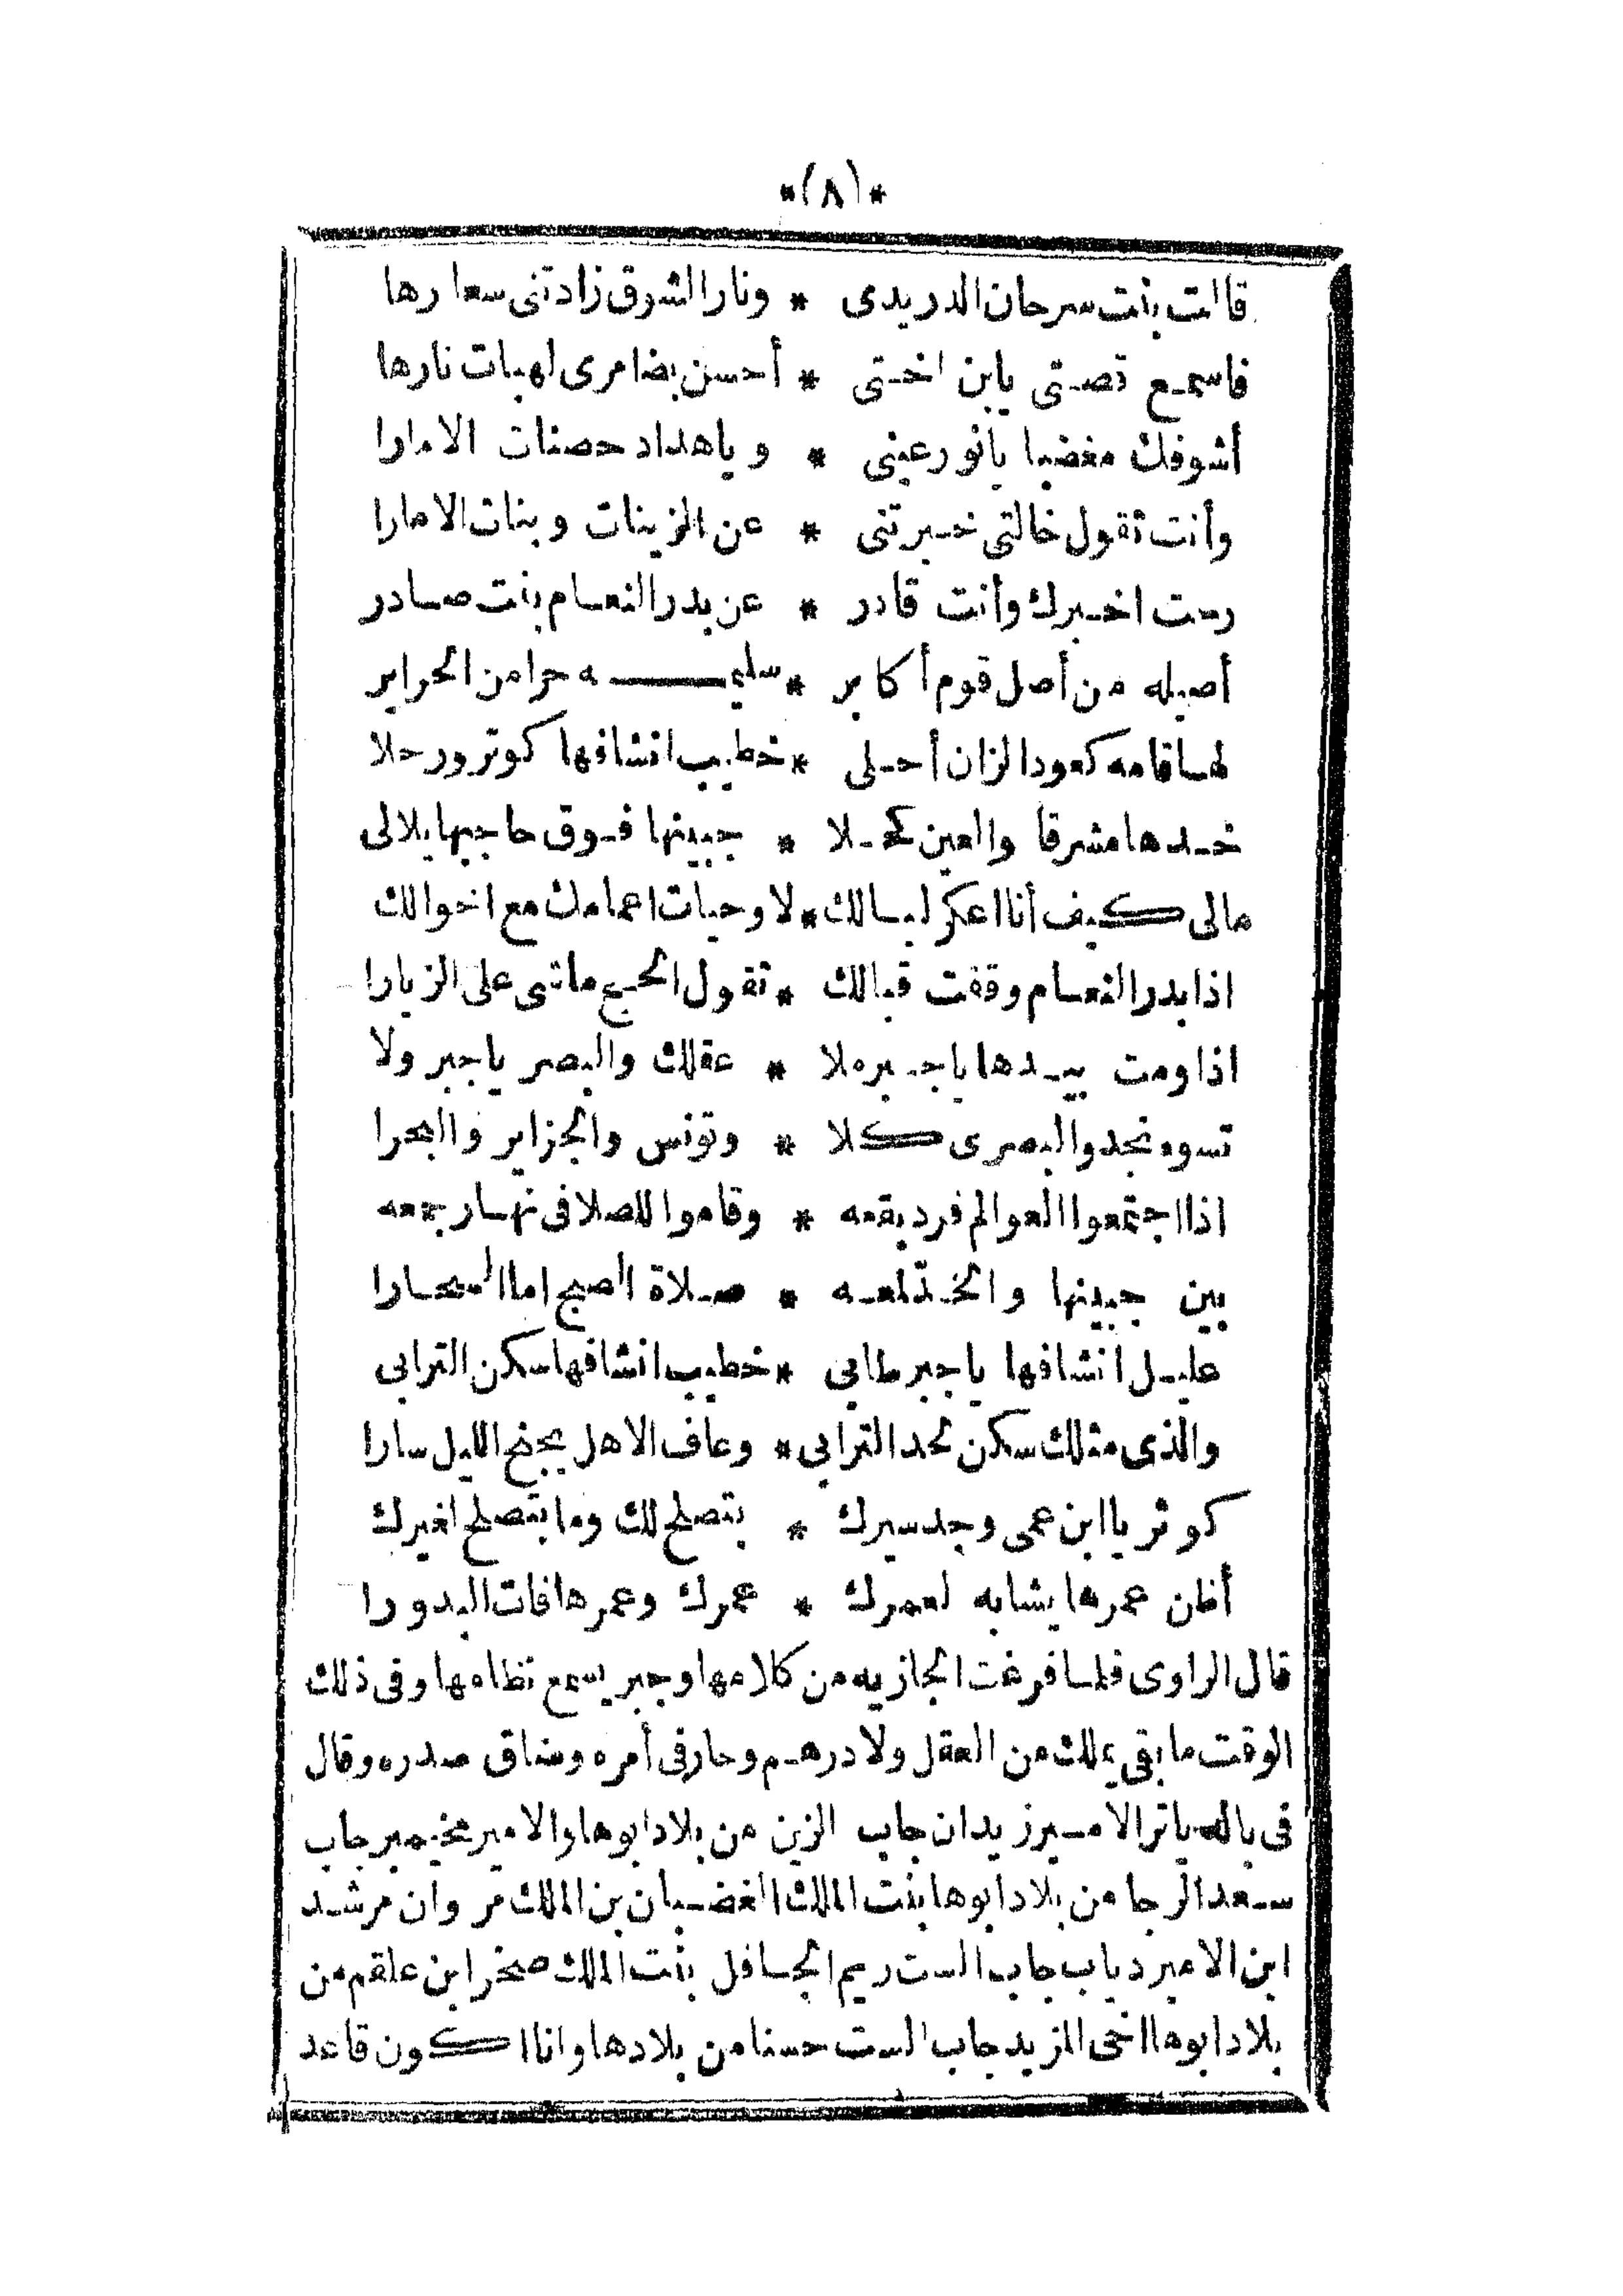 *(٨)*
قالت بنت سرحان الدريدى * ونار الشوق زادتنى سعارها
فاسمع قصتى يابن اختى * أحسن بضامرى لهبات نارها
أشوفك مغضبا يانور عينى * وياهداد حصنات الامارا
وأنت تقول خالتى خبرتنى * عن الزينات وبنات الامارا
رحت اخبرك وأنت قادر * عن بدر النعام بنت صادر
أصيله من أصل قوم أكابر * سليمه حرا من الحراير
لها قامه كعود الزان أحلى * خطيب انشافها كوتر ورحلا
خدها مشرقا والعين كحلا * جبينها فوق حاجبها يلالى
مالى كيف أنا اعكر لبالك * لا وحيات اعمامك مع اخوالك
اذا بدر النعام وقفت قبالك * تقول الحج ماتى على الزيارا
اذا ومت بيدها ياجبر ملا * عقلك والبصر ياجبر ولا
تسوه نجد والبصرى كلا * وتونس والجزاير والبحرا
اذا اجتمعوا العوالم فرد بقعه * وقاموا للصلا فى نهار جمعه
بين جبينها والخد لمعه * صلاة الصبح اما السحارا
عليل انشافها ياجبر طابى * خطيب انشافها سكن الترابى
والذى مثلك سكن لحد الترابى * وعاف الاهل بجنح الليل سارا
كوثر يا ابن عمى وجد سيرك * بتصلح لك وما بتصلح لغيرك
أظن عمرها يشابه لعمرك * عمرك وعمرها فات البدورا
قال الراوى فلما فرغت الجازيه من كلامها وجبر يسمع نظامها وفى ذلك
الوقت ما بقى يملك من العقل ولا درهم وحار فى أمره وضاق صدره وقال
فى باله ياتر الامير زيدان جاب الزين من بلاد ابوها والامير مخيمير جاب
سعد الرجا من بلاد ابوها بنت الملك الغضبان بن الملك تمر وان مرشد
ابن الامير دياب جاب الست ريم الجافل بنت الملك صخر ابن علقم من
بلاد ابوها اخى المزيد جاب الست حسنا من بلادها وانا اكون قاعد